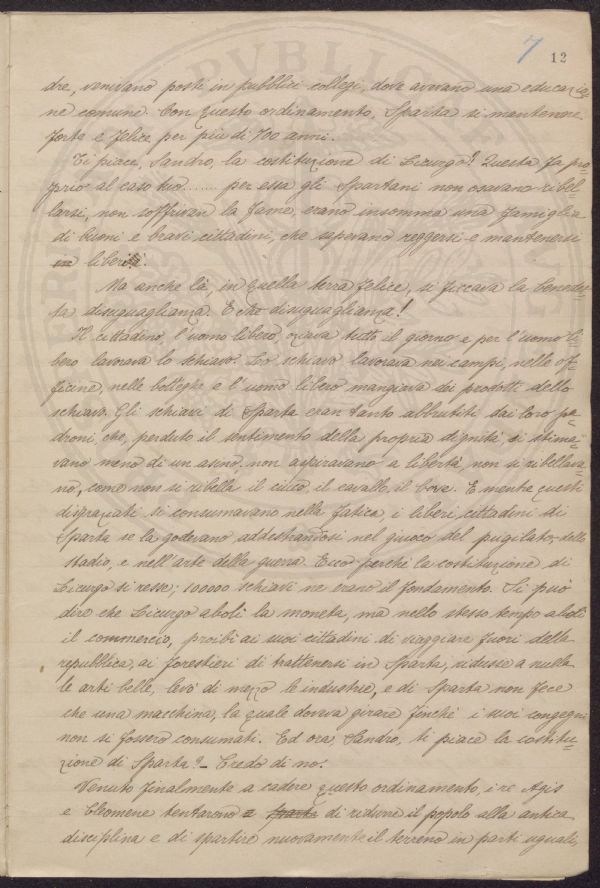 7 12
dre, venivano posti in pubblici collegi, dove avevano una educazio-
ne comune. Con questo ordinamento, Sparta si mantenne
forte e felice per più di 700 anni.
Ti piace, Sandro, la costituzione di Licurgo? Questa fa pro-
prio al caso tuo....... per essa gli Spartani non osavano ribel-
larsi, non soffrivan la fame, erano insomma una famiglia
di buoni e bravi cittadini, che sapevano reggersi e mantenersi
in liberi.
Ma anche là, in quella terra felice, si ficcava la benedet-
ta disuguaglianza. E che disuguaglianza!
Il cittadino, l'uomo libero, oziava tutto il giorno e per l'uomo li-
bero lavorava lo schiavo. Lo schiavo lavorava nei campi, nelle of-
ficine, nelle botteghe e l'uomo libero mangiava dei prodotti dello
schiavo. Gli schiavi di Sparta eran tanto abbrutiti dai loro pa-
droni, che, perduto il sentimento della propria dignità si stima-
vano meno di un asino, non aspiravano a libertà, non si ribellava-
no, come non si ribella il ciuco, il cavallo, il bove. E mentre questi
disgraziati si consumavano nella fatica, i liberi cittadini di
Sparta se la godevano addestrandosi nel giuoco del pugilato, dello
stadio, e nell'arte della guerra. Ecco perchè la costituzione di
Licurgo si resse; 10000 schiavi ne erano il fondamento. Si può
dire che Licurgo abolì la moneta, ma nello stesso tempo abolì
il commercio, proibì ai suoi cittadini di viaggiare fuori della
repubblica, ai forestieri di trattenersi in Sparta, ridusse a nulla
le arti belle, levò di mezzo le industrie, e di Sparta non fece
che una macchina, la quale doveva girare finchè i suoi congegni
non si fossero consumati. Ed ora, Sandro, ti piace la costitu-
zione di Sparta? - Credo di no.
Venuto finalmente a cadere questo ordinamento, i re Agis
e Cleomene tentarono a Sparta di ridurre il popolo alla antica
disciplina e di spartire nuovamente il terreno in parti uguali,